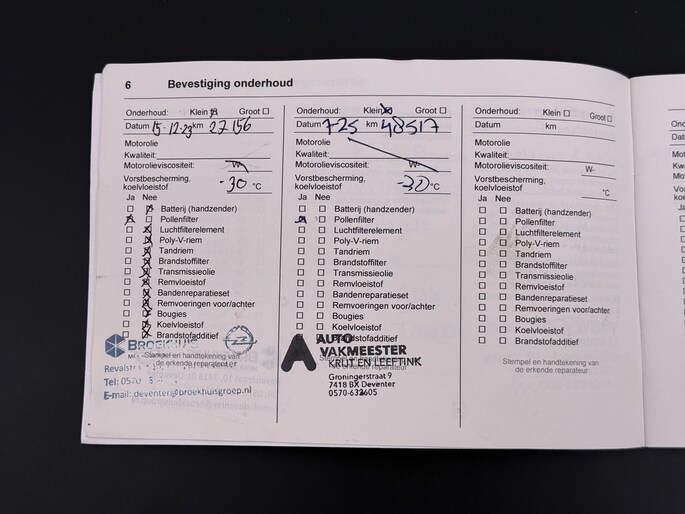 6 Bevestiging onderhoud
Onderhoud: Klein Groot
Datum 15-12-23 km 27156
Motorolie
Kwaliteit:
Motorolieviscositeit: W-
Vorstbescherming, koelvloeistof -30 °C
Ja Nee
Batterij (handzender)
Pollenfilter
Luchtfilterelement
Poly-V-riem
Tandriem
Brandstoffilter
Transmissieolie
Remvloeistof
Bandenreparatieset
Remvoeringen voor/achter
Bougies
Koelvloeistof
Brandstofadditief
BROEKHUIS
Stempel en handtekening van
de erkende reparateur
Revalstr
Tel: 0570
E-mail: deventer@broekhuisgroep.nl
Onderhoud: Klein Groot
Datum 725 km 48517
Motorolie
Kwaliteit:
Motorolieviscositeit: W-
Vorstbescherming, koelvloeistof -30 °C
Ja Nee
Batterij (handzender)
Pollenfilter
Luchtfilterelement
Poly-V-riem
Tandriem
Brandstoffilter
Transmissieolie
Remvloeistof
Bandenreparatieset
Remvoeringen voor/achter
Bougies
Koelvloeistof
Brandstofadditief
AUTO
VAKMEESTER
Stempel en handtekening van
KROT EN LEEFTINK
de erkende reparateur
Groningerstraat 9
7418 BX Deventer
0570-632605
Onderhoud: Klein Groot
Datum km
Motorolie
Kwaliteit:
Motorolieviscositeit: W-
Vorstbescherming, koelvloeistof °C
Ja Nee
Batterij (handzender)
Pollenfilter
Luchtfilterelement
Poly-V-riem
Tandriem
Brandstoffilter
Transmissieolie
Remvloeistof
Bandenreparatieset
Remvoeringen voor/achter
Bougies
Koelvloeistof
Brandstofadditief
Stempel en handtekening van
de erkende reparateur